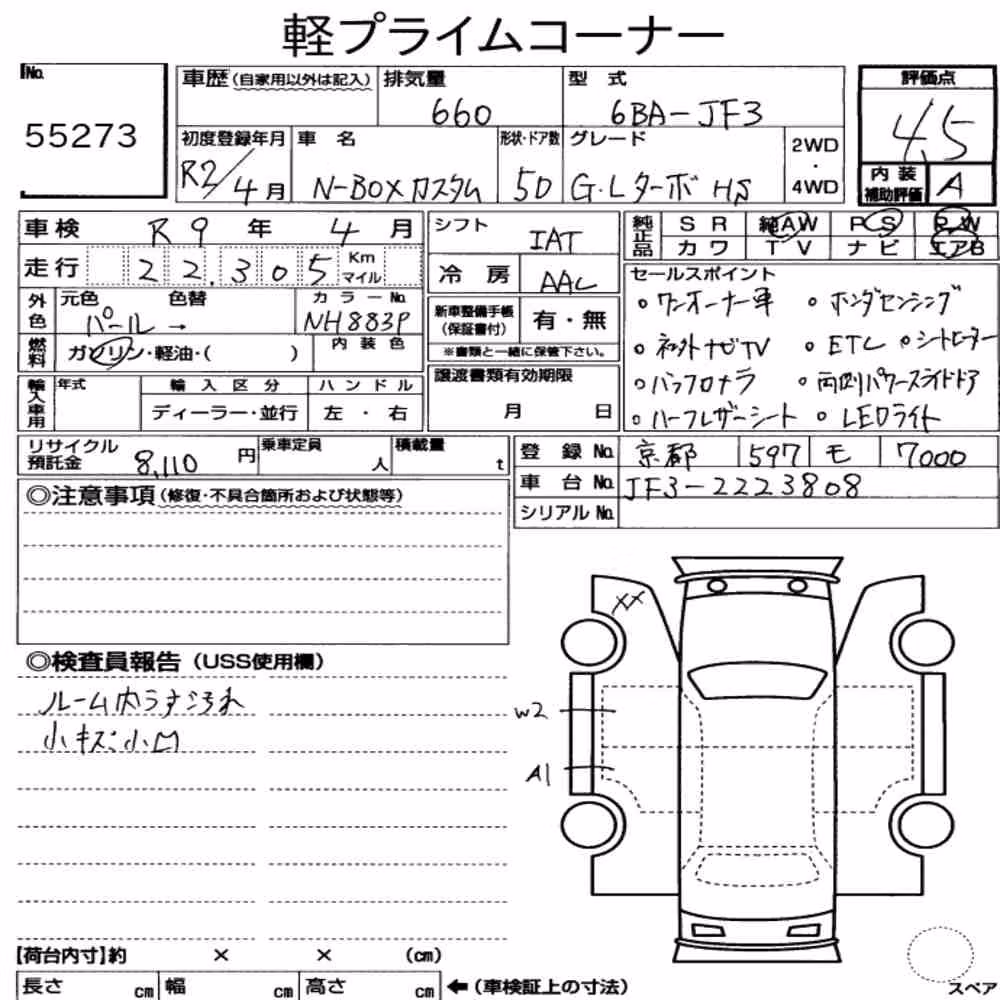 軽プライムコーナー
No. 55273
車歴(自家用以外は記入)
排気量 660
型式 6BA-JF3
評価点 4.5
初度登録年月 R2/4月
車名 N-BOXカスタム
形状・ドア数 5D
グレード G・LターボHS
2WD・4WD
内装補助評価 A
車検 R9年4月
シフト IAT
純正品 SR 純AW PS P.W
カワ TV ナビ エアB
走行 22,305 Km マイル
冷房 AAC
セールスポイント
外色 元色 パール→ 色替
カラーNo. NH883P
新車整備手帳(保証書付) 有・無
※書類と一緒に保管下さい。
燃料 ガソリン・軽油・( )
内装色
・ワンオーナー車 ・ホンダセンシング
・ネ外ナビTV ・ETC ・シートヒーター
・バックロナラ ・両側パワースライドドア
・ハーフレザーシート ・LEDライト
輸入車用 年式 輸入区分 ハンドル
ディーラー・並行 左・右
譲渡書類有効期限
月 日
リサイクル預託金 8,110円
乗車定員 人
積載量 t
登録No. 京都 597 モ 7000
車台No. JF3-2223808
シリアルNo.
◎注意事項(修復・不具合箇所および状態等)
◎検査員報告(USS使用欄)
ルーム内うすヨゴれ
小キズ小凹
XX
W2
A1
【荷台内寸】約 × × (cm)
長さ cm 幅 cm 高さ cm ←(車検証上の寸法)
スペア